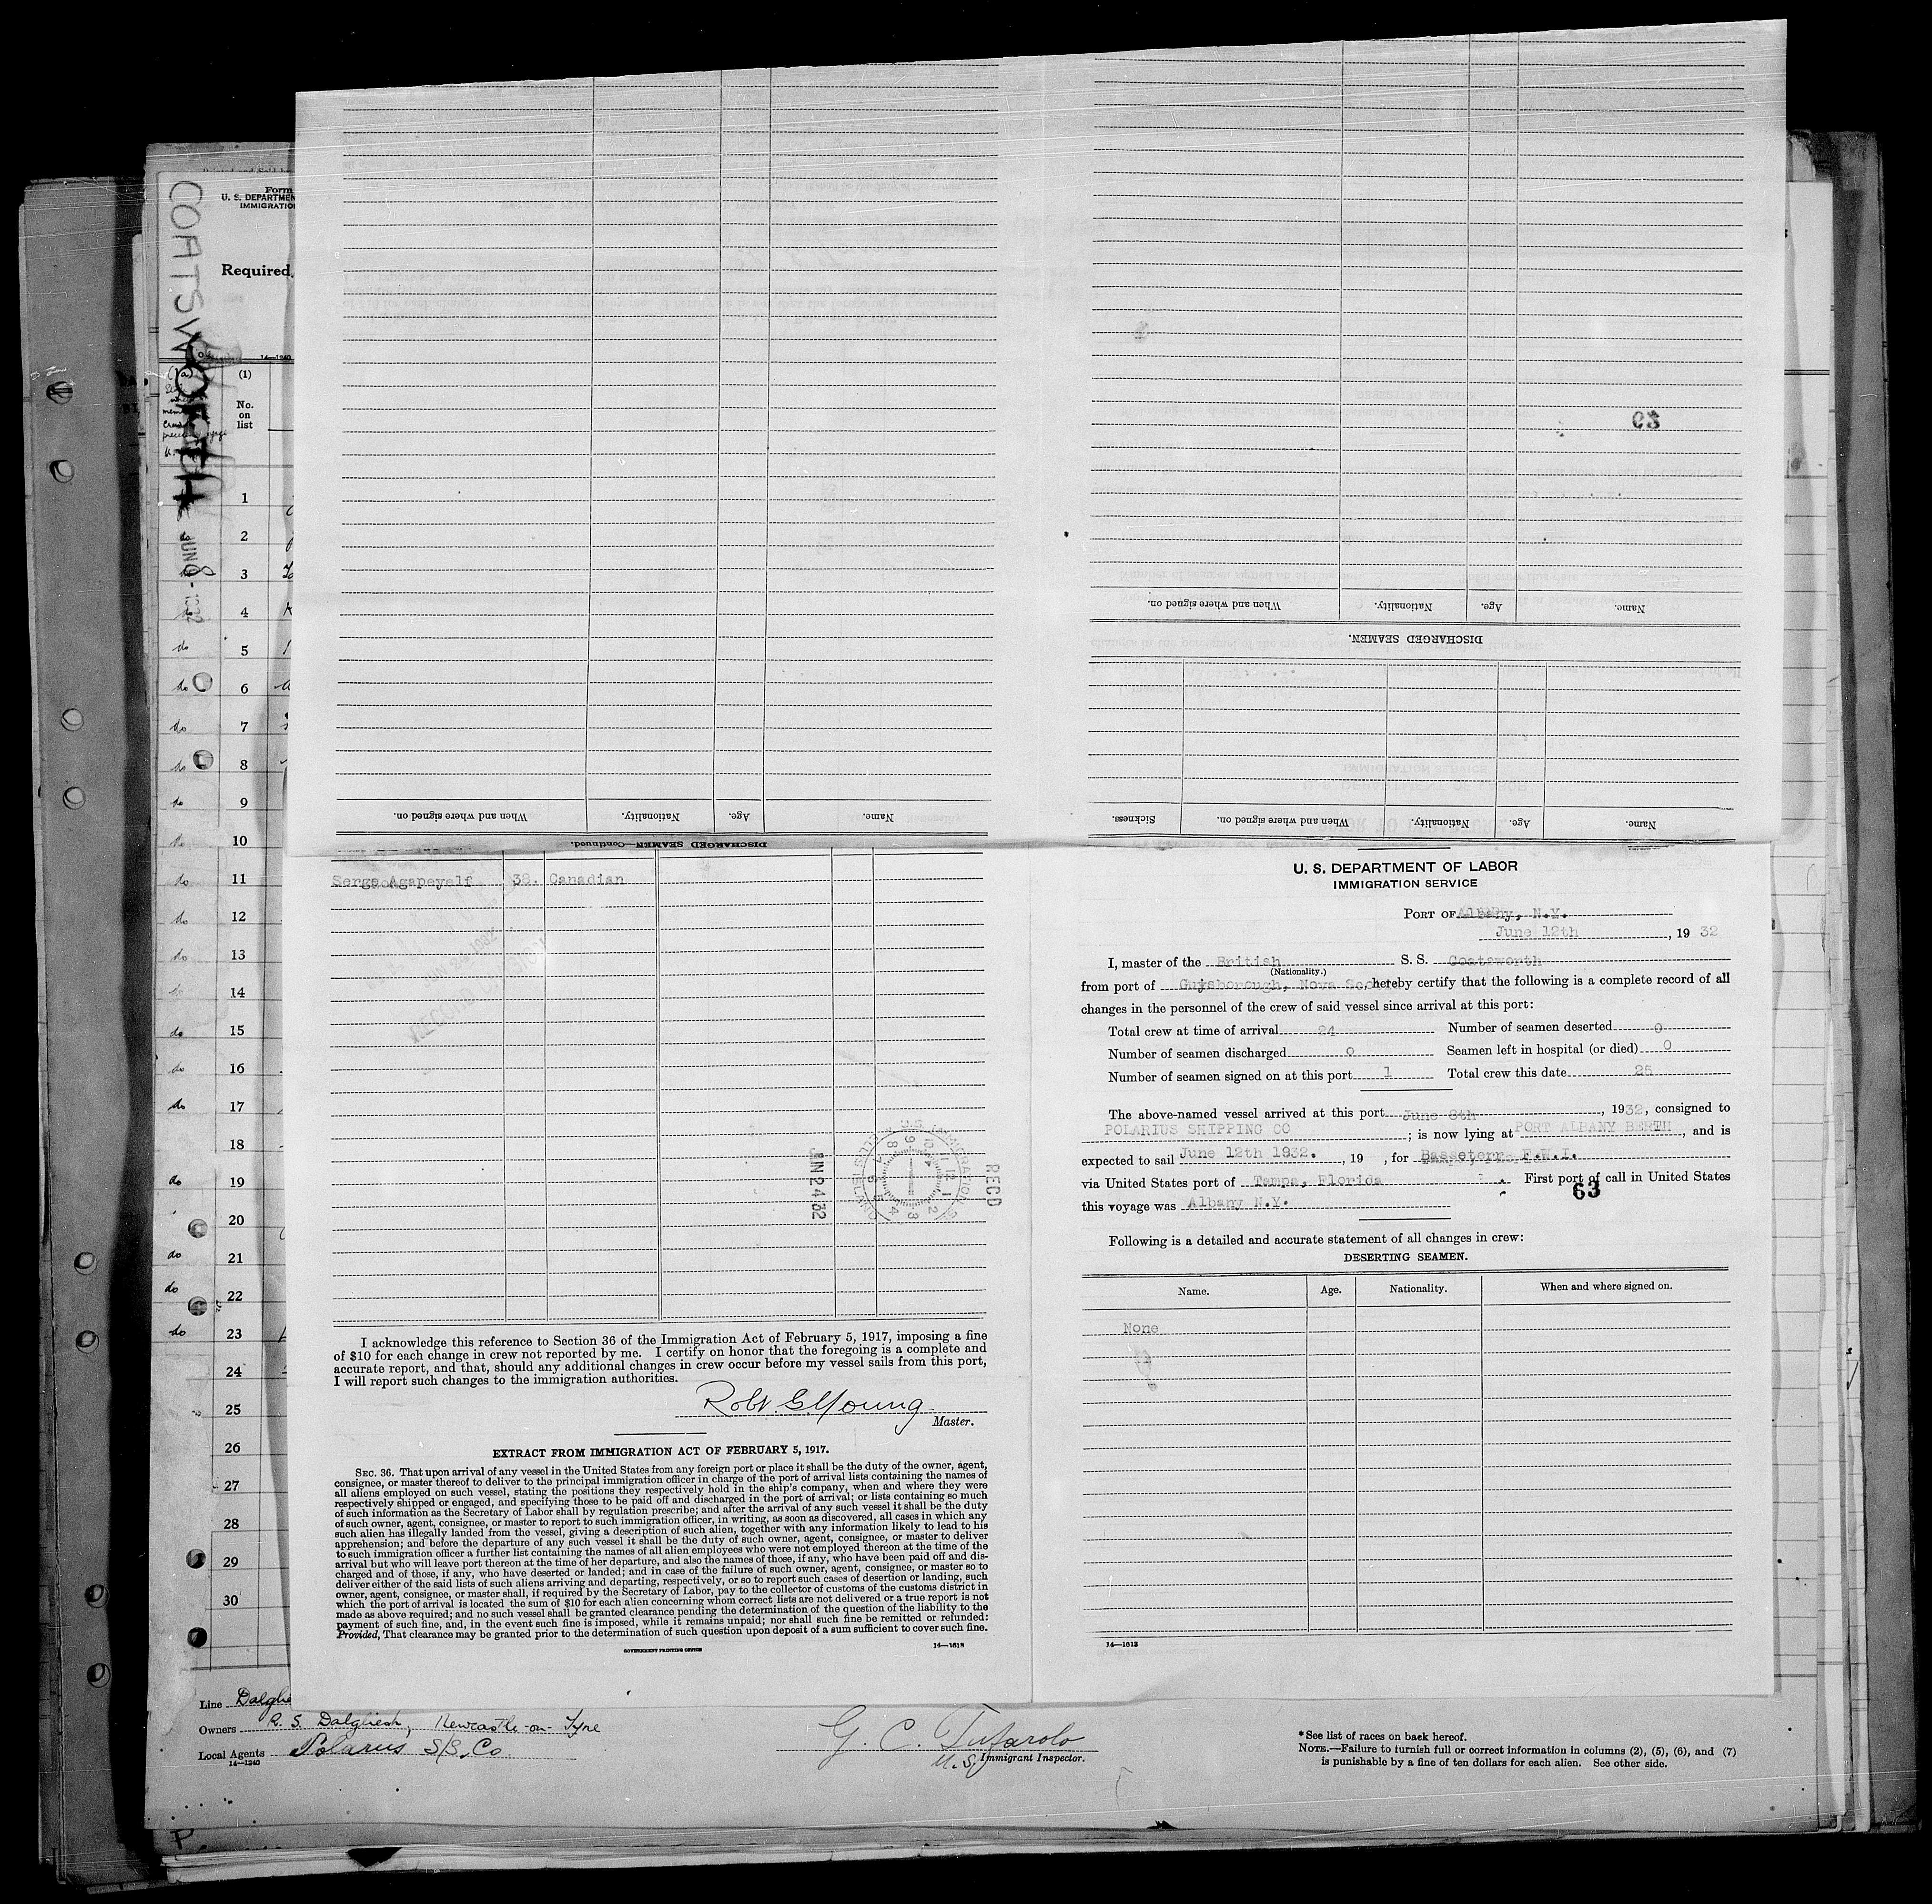 COATSWORTH
JUN 8 - 1932
Form
U. S. DEPARTMEN
IMMIGRATIO
Required,
14—1240
(1)
No.
on
list
1
do 2
do 3
do 4
do 5
do 6
do 7
do 8
do 9
do 10
do 11
do 12
do 13
do 14
do 15
do 16
do 17
18
do 19
20
do 21
do 22
do 23
24
25
26
27
28
29
30
DISCHARGED SEAMEN.
Name. Age. Nationality. When and where signed on.
Name. Age. Nationality. When and where signed on. Sickness.
Name. Age. Nationality. When and where signed on.
DISCHARGED SEAMEN—Continued.
Serge Agapeyelf 38. Canadian
REC'D
U.S. IMMIGRATION
JUN 24 32
I acknowledge this reference to Section 36 of the Immigration Act of February 5, 1917, imposing a fine
of $10 for each change in crew not reported by me. I certify on honor that the foregoing is a complete and
accurate report, and that, should any additional changes in crew occur before my vessel sails from this port,
I will report such changes to the immigration authorities.
Robt. G. Young
Master.
EXTRACT FROM IMMIGRATION ACT OF FEBRUARY 5, 1917.
SEC. 36. That upon arrival of any vessel in the United States from any foreign port or place it shall be the duty of the owner, agent,
consignee, or master thereof to deliver to the principal immigration officer in charge of the port of arrival lists containing the names of
all aliens employed on such vessel, stating the positions they respectively hold in the ship's company, when and where they were
respectively shipped or engaged, and specifying those to be paid off and discharged in the port of arrival; or lists containing so much
of such information as the Secretary of Labor shall by regulation prescribe; and after the arrival of any such vessel it shall be the duty
of such owner, agent, consignee, or master to report to such immigration officer, in writing, as soon as discovered, all cases in which any
such alien has illegally landed from the vessel, giving a description of such alien, together with any information likely to lead to his
apprehension; and before the departure of any such vessel it shall be the duty of such owner, agent, consignee, or master to deliver
to such immigration officer a further list containing the names of all alien employees who were not employed thereon at the time of the
arrival but who will leave port thereon at the time of her departure, and also the names of those, if any, who have been paid off and dis-
charged and of those, if any, who have deserted or landed; and in case of the failure of such owner, agent, consignee, or master so to
deliver either of the said lists of such aliens arriving and departing, respectively, or so to report such cases of desertion or landing, such
owner, agent, consignee, or master shall, if required by the Secretary of Labor, pay to the collector of customs of the customs district in
which the port of arrival is located the sum of $10 for each alien concerning whom correct lists are not delivered or a true report is not
made as above required; and no such vessel shall be granted clearance pending the determination of the question of the liability to the
payment of such fine, and, in the event such fine is imposed, while it remains unpaid; nor shall such fine be remitted or refunded:
Provided, That clearance may be granted prior to the determination of such question upon deposit of a sum sufficient to cover such fine.
GOVERNMENT PRINTING OFFICE 14—1613
U. S. DEPARTMENT OF LABOR
IMMIGRATION SERVICE
PORT OF Albany, N.Y.
June 12th, 1932
I, master of the British S. S. Coatsworth
(Nationality.)
from port of Guysborough, Nova Sco, hereby certify that the following is a complete record of all
changes in the personnel of the crew of said vessel since arrival at this port:
Total crew at time of arrival 24 Number of seamen deserted 0
Number of seamen discharged 0 Seamen left in hospital (or died) 0
Number of seamen signed on at this port 1 Total crew this date 25
The above-named vessel arrived at this port June 8th, 1932, consigned to
POLARIUS SHIPPING CO; is now lying at PORT ALBANY BERTH, and is
expected to sail June 12th 1932., 19 , for Basseterr F.W.I.
via United States port of Tampa, Florida. First port of call in United States
63
this voyage was Albany N.Y.
Following is a detailed and accurate statement of all changes in crew:
DESERTING SEAMEN.
Name. Age. Nationality. When and where signed on.
None
14—1613
Line Dalglie
Owners R. S. Dalgliesh, Newcastle-on-Tyne
Local Agents Polarius S/S. Co.
14—1240
G. C. Tufarolo
U. S. Immigrant Inspector.
* See list of races on back hereof.
NOTE.—Failure to furnish full or correct information in columns (2), (5), (6), and (7)
is punishable by a fine of ten dollars for each alien. See other side.